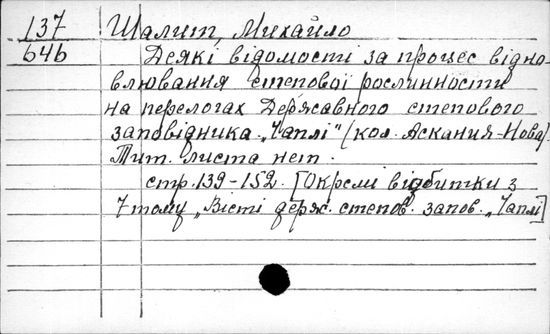 137 Шалит, Михайло
646 Деякі відомості за процес відно-
влювання степової рослинности
на перелогах Державного степового
заповідника „Чаплі" (кол. Аскания-Нова).
Тит. листа нет.
стр. 139-152. [Окремі відбитки з
7 тому „Вісті держ. степов. запов. „Чаплі]